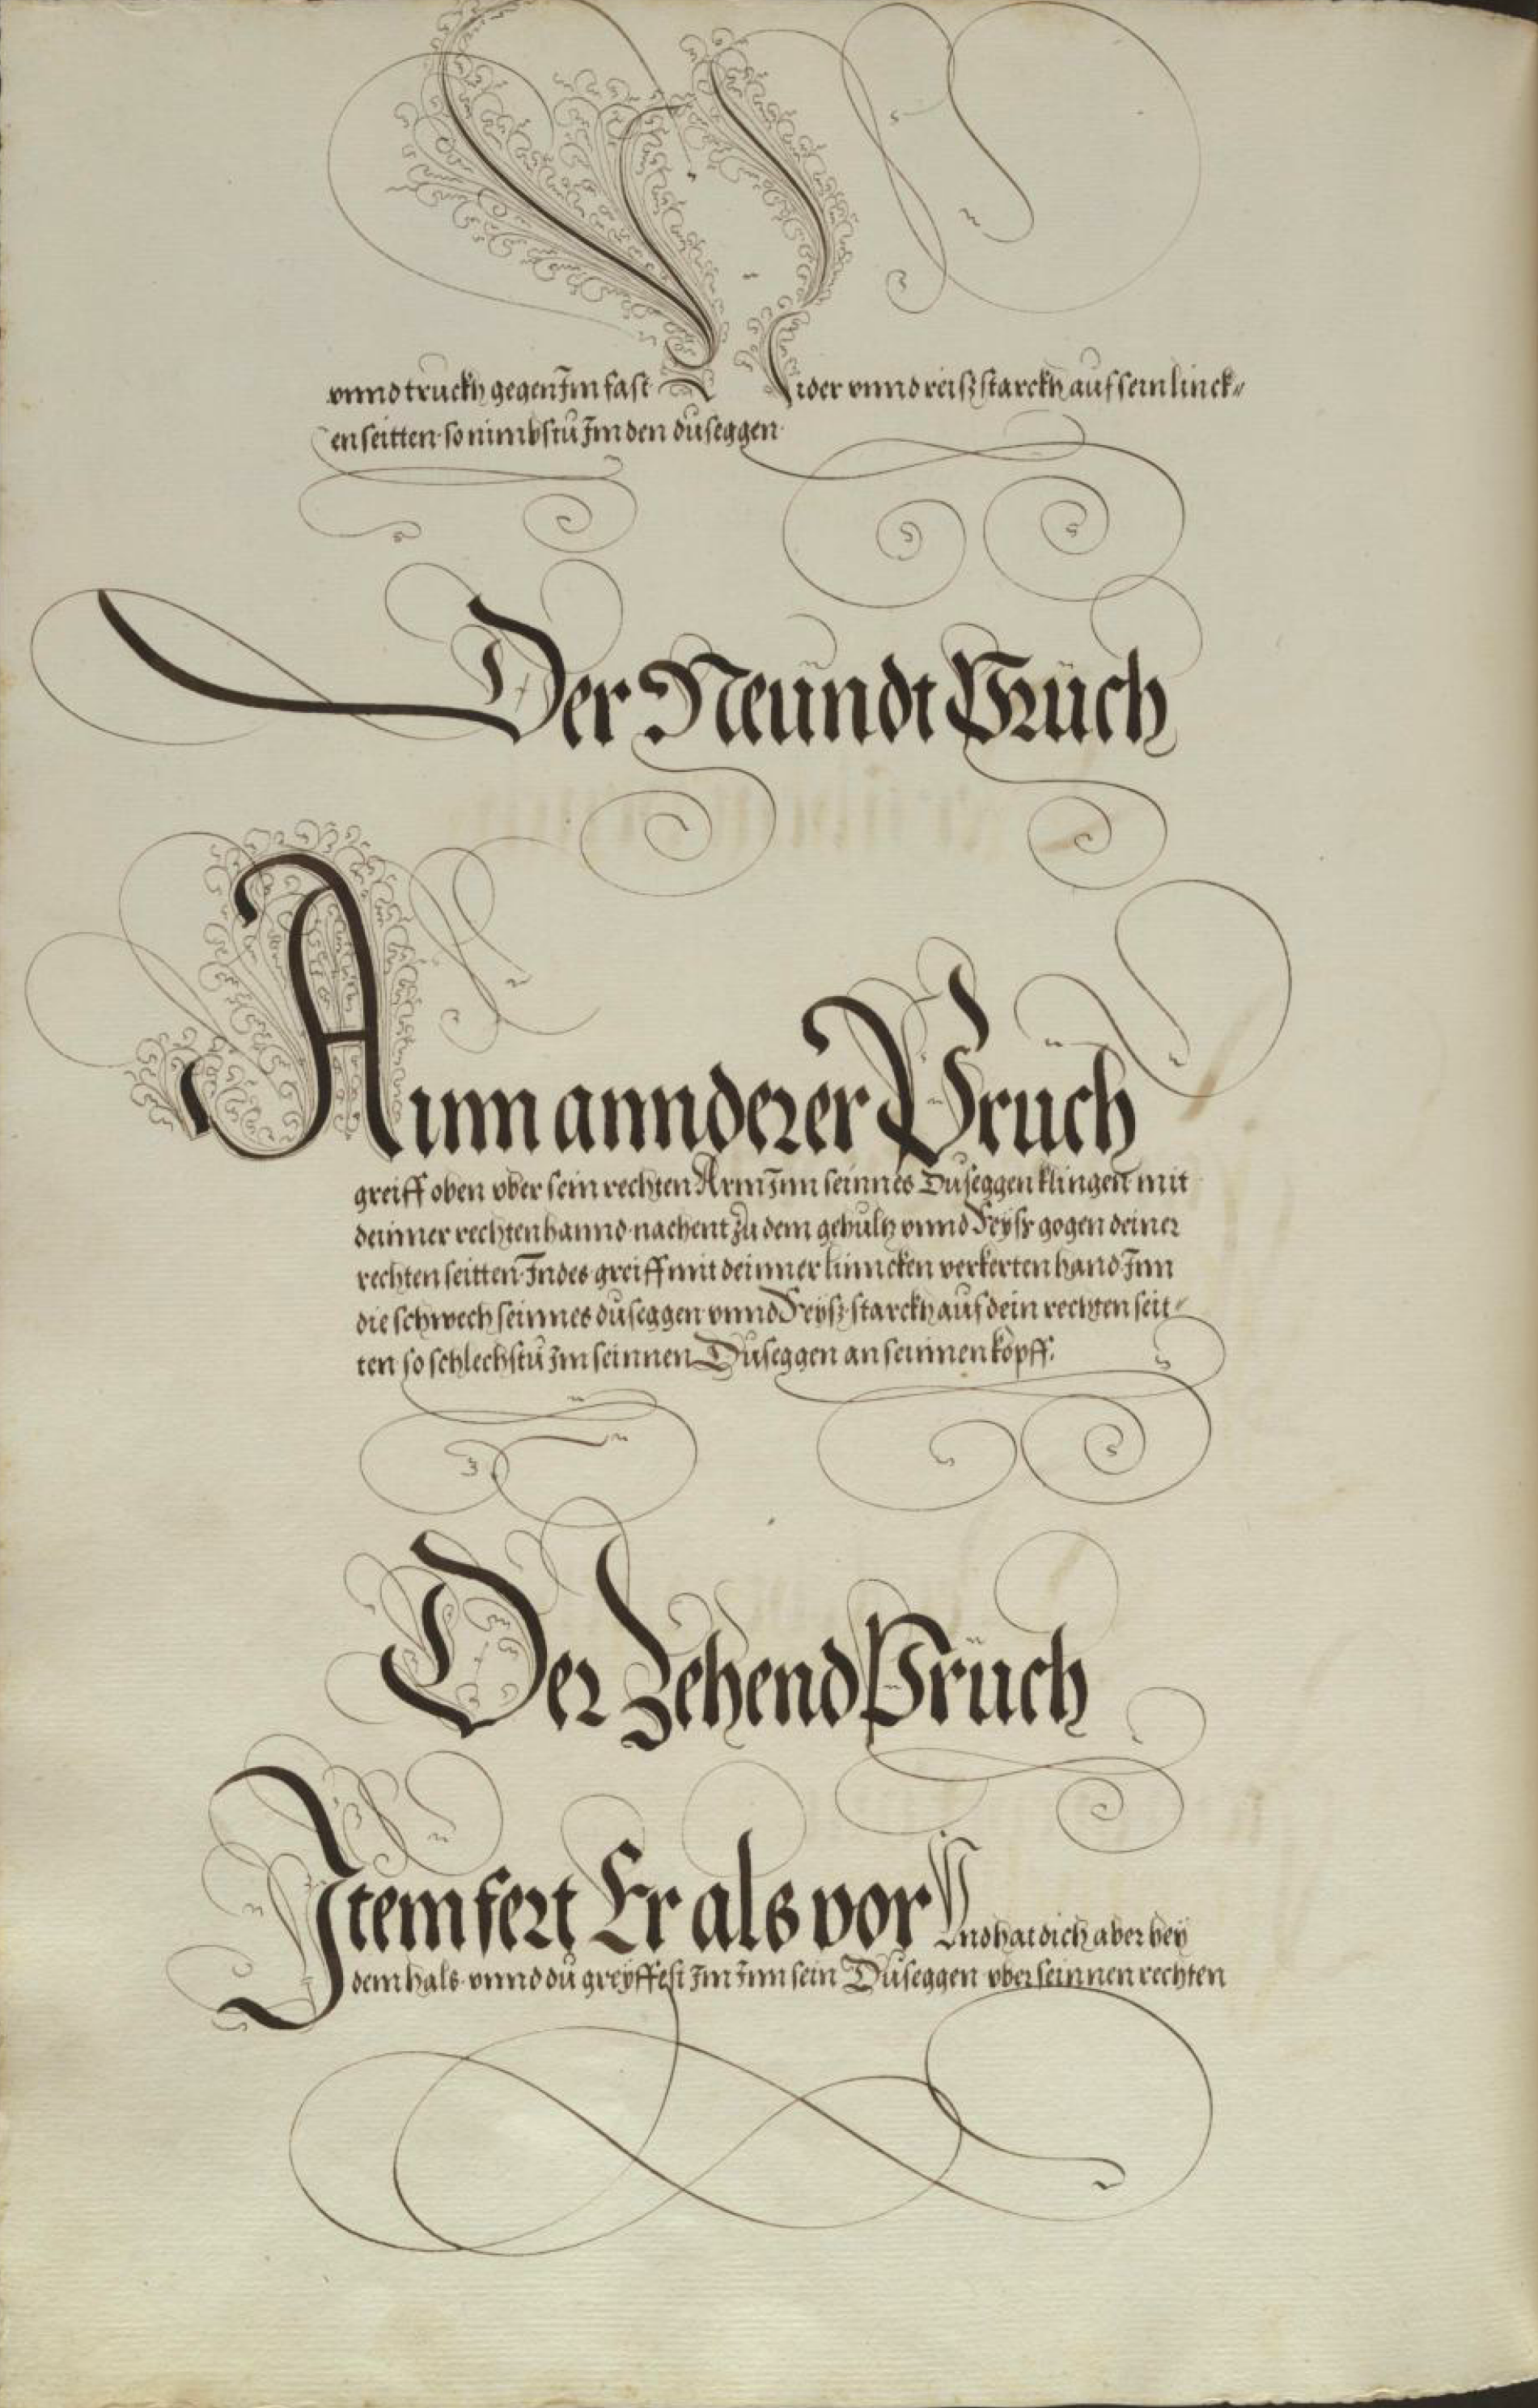 vnnd truckh gegen Im fast Nider vnnd reiß starckh auf sein linck=
en seitten so nimbstu Im den duseggen
Der Neundt Bruch
Ainn annderer Pruch
greiff oben vber sein rechten Arm Inn seinnes Duseggen klingen mit
deinner rechten hannd nachent zu dem gehultz vnnd Reyß gegen deiner
rechten seitten Indes greiff mit deinner linncken verkerten hand Inn
die schwech seinnes duseggen vnnd Reyß starckh auf dein rechten seit=
ten so schlechstu Im seinnen Duseggen an seinnen kopff.
Der Zehend Pruch
Item fert Er als vor Vnd hat dich aber bey
dem hals vnnd du greyffest Im Inn sein Duseggen vber seinnen rechten